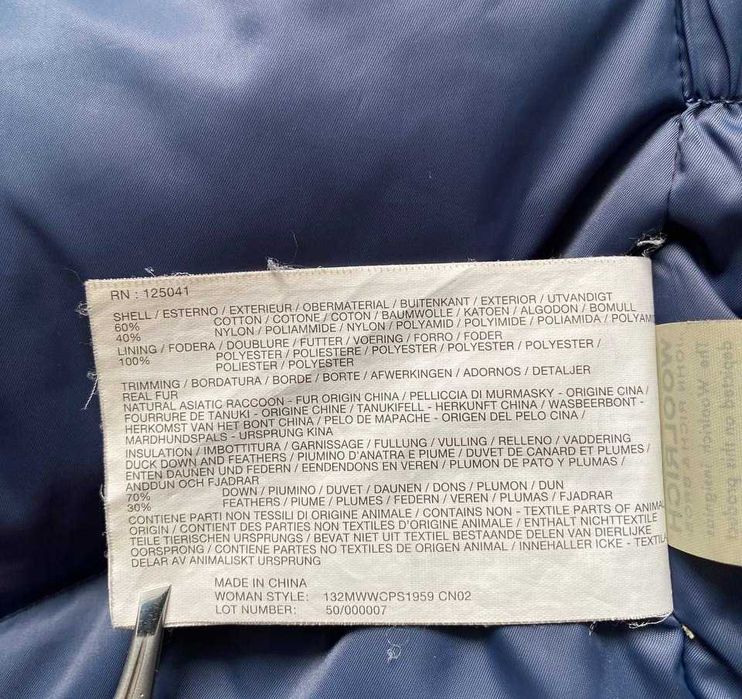 RN : 125041
SHELL / ESTERNO / EXTERIEUR / OBERMATERIAL / BUITENKANT / EXTERIOR / UTVANDIGT
60% COTTON / COTONE / COTON / BAUMWOLLE / KATOEN / ALGODON / BOMULL
40% NYLON / POLIAMMIDE / NYLON / POLYAMID / POLYIMIDE / POLIAMIDA / POLYAMI
LINING / FODERA / DOUBLURE / FUTTER / VOERING / FORRO / FODER
100% POLYESTER / POLIESTERE / POLYESTER / POLYESTER / POLYESTER /
POLIESTER / POLYESTER
TRIMMING / BORDATURA / BORDE / BORTE / AFWERKINGEN / ADORNOS / DETALJER
REAL FUR
NATURAL ASIATIC RACCOON - FUR ORIGIN CHINA / PELLICCIA DI MURMASKY - ORIGINE CINA /
FOURRURE DE TANUKI - ORIGINE CHINE / TANUKIFELL - HERKUNFT CHINA / WASBEERBONT -
HERKOMST VAN HET BONT CHINA / PELO DE MAPACHE - ORIGEN DEL PELO CINA /
MARDHUNDSPALS - URSPRUNG KINA
INSULATION / IMBOTTITURA / GARNISSAGE / FULLUNG / VULLING / RELLENO / VADDERING
DUCK DOWN AND FEATHERS / PIUMINO D'ANATRA E PIUME / DUVET DE CANARD ET PLUMES /
ENTEN DAUNEN UND FEDERN / EENDENDONS EN VEREN / PLUMON DE PATO Y PLUMAS /
ANDDUN OCH FJADRAR
70% DOWN / PIUMINO / DUVET / DAUNEN / DONS / PLUMON / DUN
30% FEATHERS / PIUME / PLUMES / FEDERN / VEREN / PLUMAS / FJADRAR
CONTIENE PARTI NON TESSILI DI ORIGINE ANIMALE / CONTAINS NON - TEXTILE PARTS OF ANIMAL
ORIGIN / CONTIENT DES PARTIES NON TEXTILES D'ORIGINE ANIMALE / ENTHALT NICHTTEXTILE
TEILE TIERISCHEN URSPRUNGS / BEVAT NIET UIT TEXTIEL BESTAANDE DELEN VAN DIERLIJKE
OORSPRONG / CONTIENE PARTES NO TEXTILES DE ORIGEN ANIMAL / INNEHALLER ICKE - TEXTILA
DELAR AV ANIMALISKT URSPRUNG
MADE IN CHINA
WOMAN STYLE: 132MWWCPS1959 CN02
LOT NUMBER: 50/000007
The Woolrich
JOHN RICH
WOOLRICH